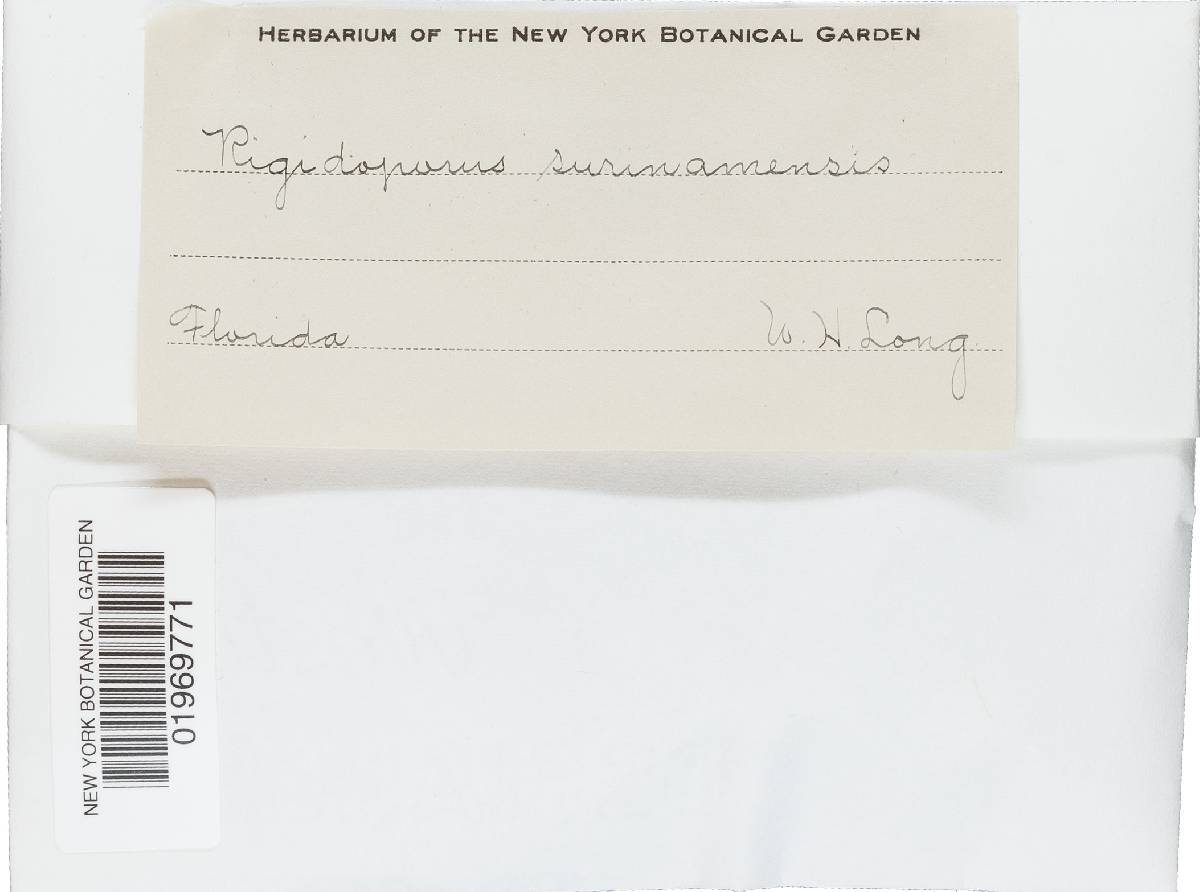 HERBARIUM OF THE NEW YORK BOTANICAL GARDEN
Rigidoporus surinamensis
Florida W. H. Long.
NEW YORK BOTANICAL GARDEN
01969771